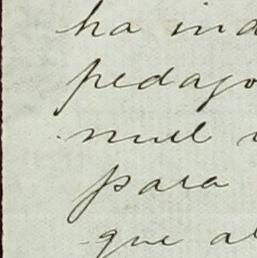 ha ind
pedago
muel
para
que al